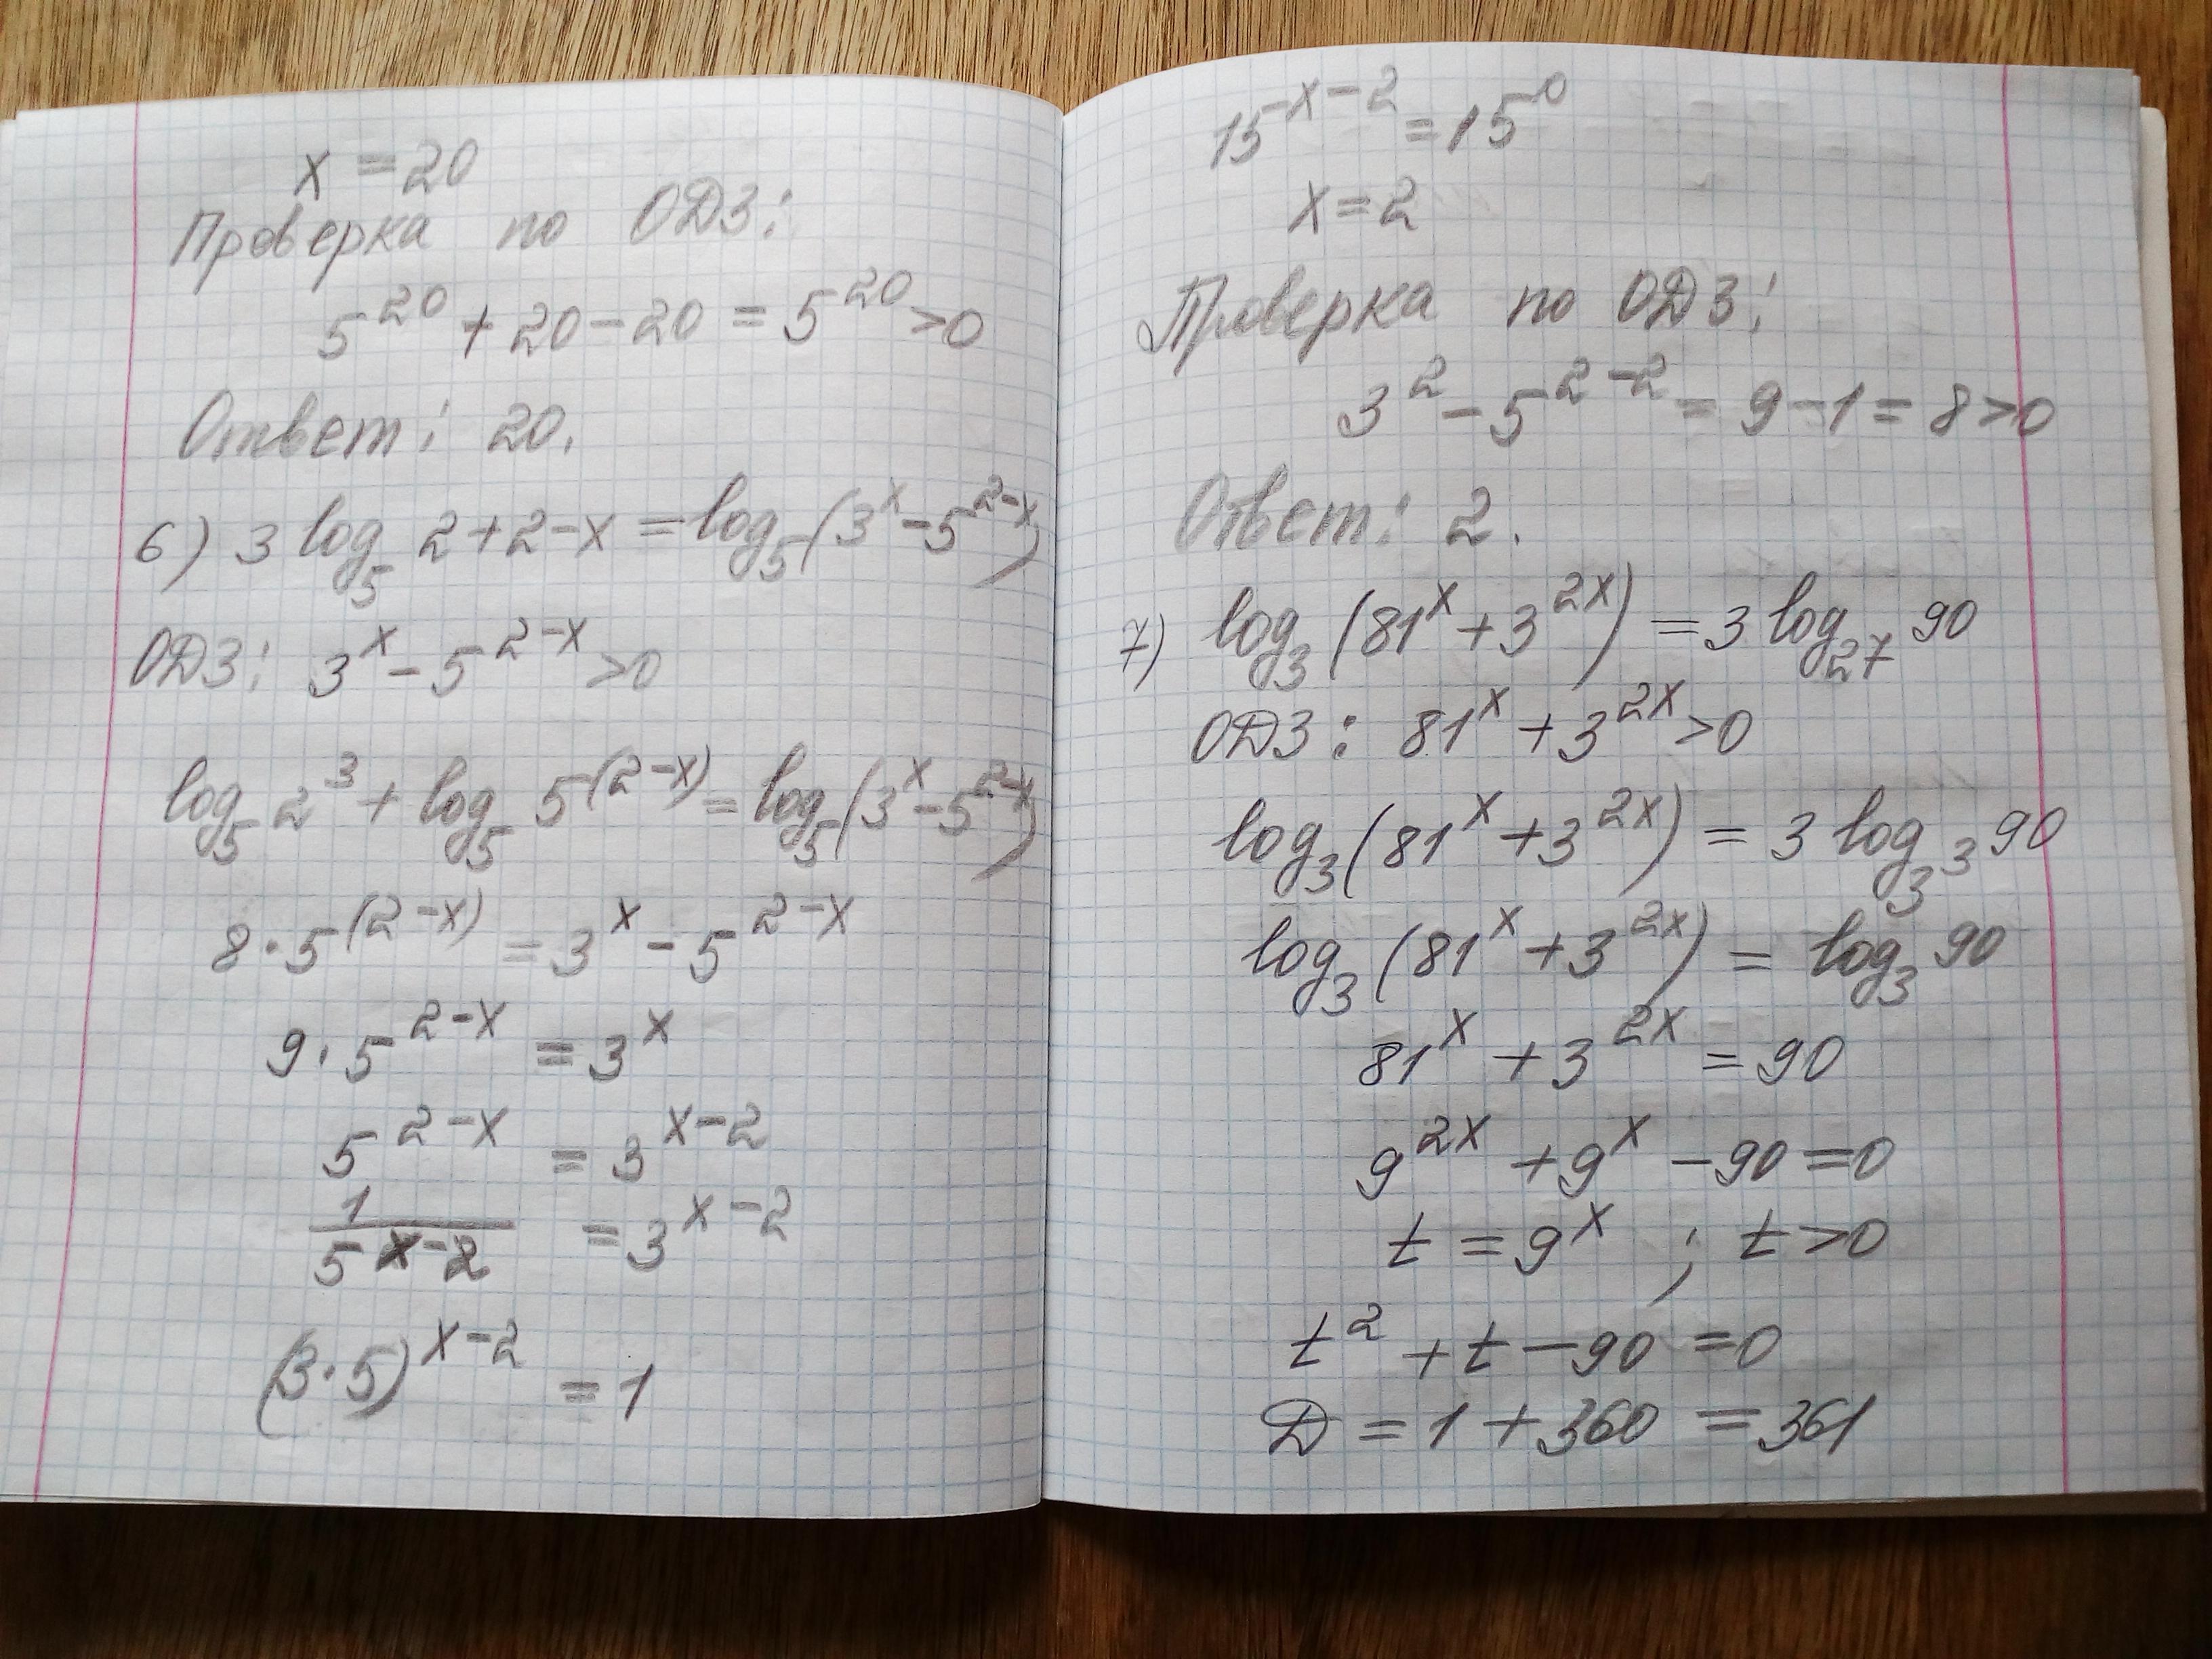 x = 20
Проверка по ОДЗ:
5^20 + 20 - 20 = 5^20 > 0
Ответ: 20.
6) 3 log_5 2 + 2 - x = log_5 (3^x - 5^(2-x))
ОДЗ: 3^x - 5^(2-x) > 0
log_5 2^3 + log_5 5^(2-x) = log_5 (3^x - 5^(2-x))
8 · 5^(2-x) = 3^x - 5^(2-x)
9 · 5^(2-x) = 3^x
5^(2-x) = 3^(x-2)
1/5^(x-2) = 3^(x-2)
(3 · 5)^(x-2) = 1
15^(x-2) = 15^0
x = 2
Проверка по ОДЗ:
3^2 - 5^(2-2) = 9 - 1 = 8 > 0
Ответ: 2.
7) log_3 (81^x + 3^(2x)) = 3 log_27 90
ОДЗ: 81^x + 3^(2x) > 0
log_3 (81^x + 3^(2x)) = 3 log_(3^3) 90
log_3 (81^x + 3^(2x)) = log_3 90
81^x + 3^(2x) = 90
9^(2x) + 9^x - 90 = 0
t = 9^x ; t > 0
t^2 + t - 90 = 0
D = 1 + 360 = 361